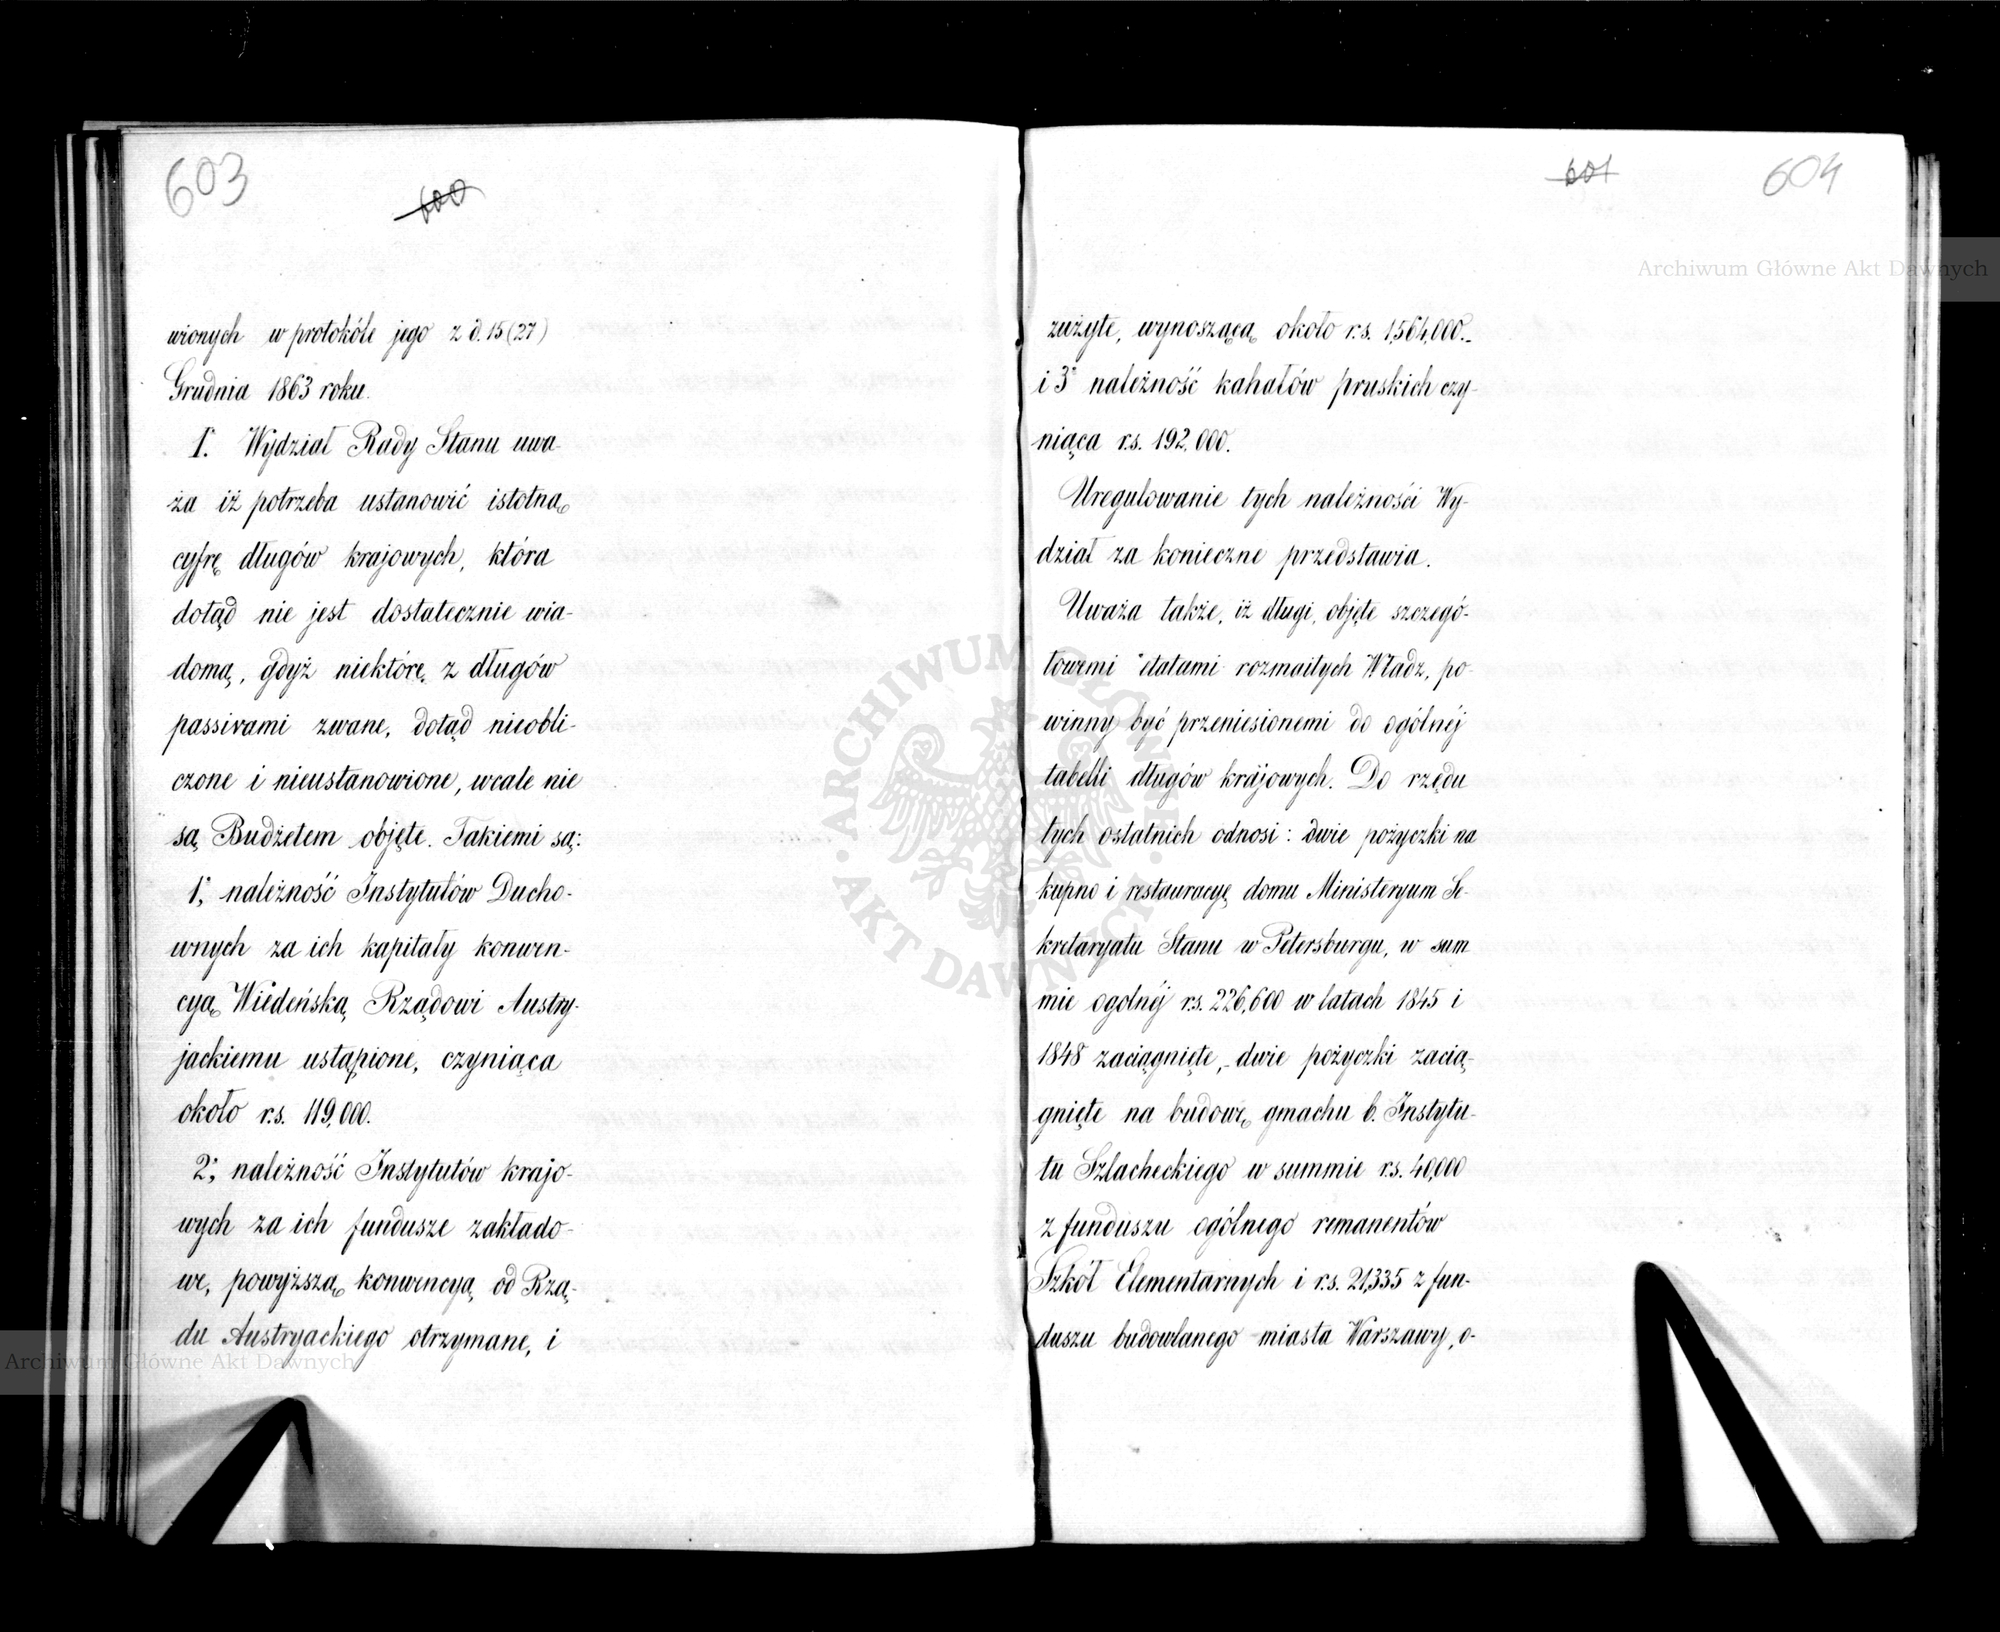 603
600
wionych w protokóle jego z d. 15 (27)
Grudnia 1863 roku.
1. Wydział Rady Stanu uwa-
ża iż potrzeba ustanowić istotną
cyfrę długów krajowych, która
dotąd nie jest dostatecznie wia-
domą, gdyż niektóre z długów
passivami zwane, dotąd nieobli-
czone i nieustanowione, wcale nie
są Budżetem objęte. Takiemi są:
1°, należność Instytutów Ducho-
wnych za ich kapitały konwen-
cyą Wiedeńską Rządowi Austry-
jackiemu ustąpione, czyniąca
około r.s. 119,000.
2°, należność Instytutów krajo-
wych za ich fundusze zakłado-
we, powyższą konwencyą od Rzą-
du Austryackiego otrzymane, i
601
604
zużyte, wynoszącą około r.s. 1,564,000.-
i 3° należność kahałów pruskich czy-
niąca r.s. 192,000.
Uregulowanie tych należności Wy-
dział za konieczne przedstawia.
Uważa także, iż długi, objęte szczegó-
łowemi etatami rozmaitych Władz, po-
winny być przeniesionemi do ogólnéj
tabelli długów krajowych. Do rzędu
tych ostatnich odnosi: dwie pożyczki na
kupno i restauracyę domu Ministeryum Se-
kretaryatu Stanu w Petersburgu, w sum
mie ogolnéj r.s. 226,600 w latach 1845 i
1848 zaciągnięte,- dwie pożyczki zacią-
gnięte na budowę gmachu b. Instytu-
tu Szlacheckiego w summie r.s. 40,000
z funduszu ogólnego remanentów
Szkół Elementarnych i r.s. 21,335 z fun-
duszu budowlanego miasta Warszawy, o-
Archiwum Główne Akt Dawnych
ARCHIWUM GŁÓWNE · AKT DAWNYCH ·
Archiwum Główne Akt Dawnych